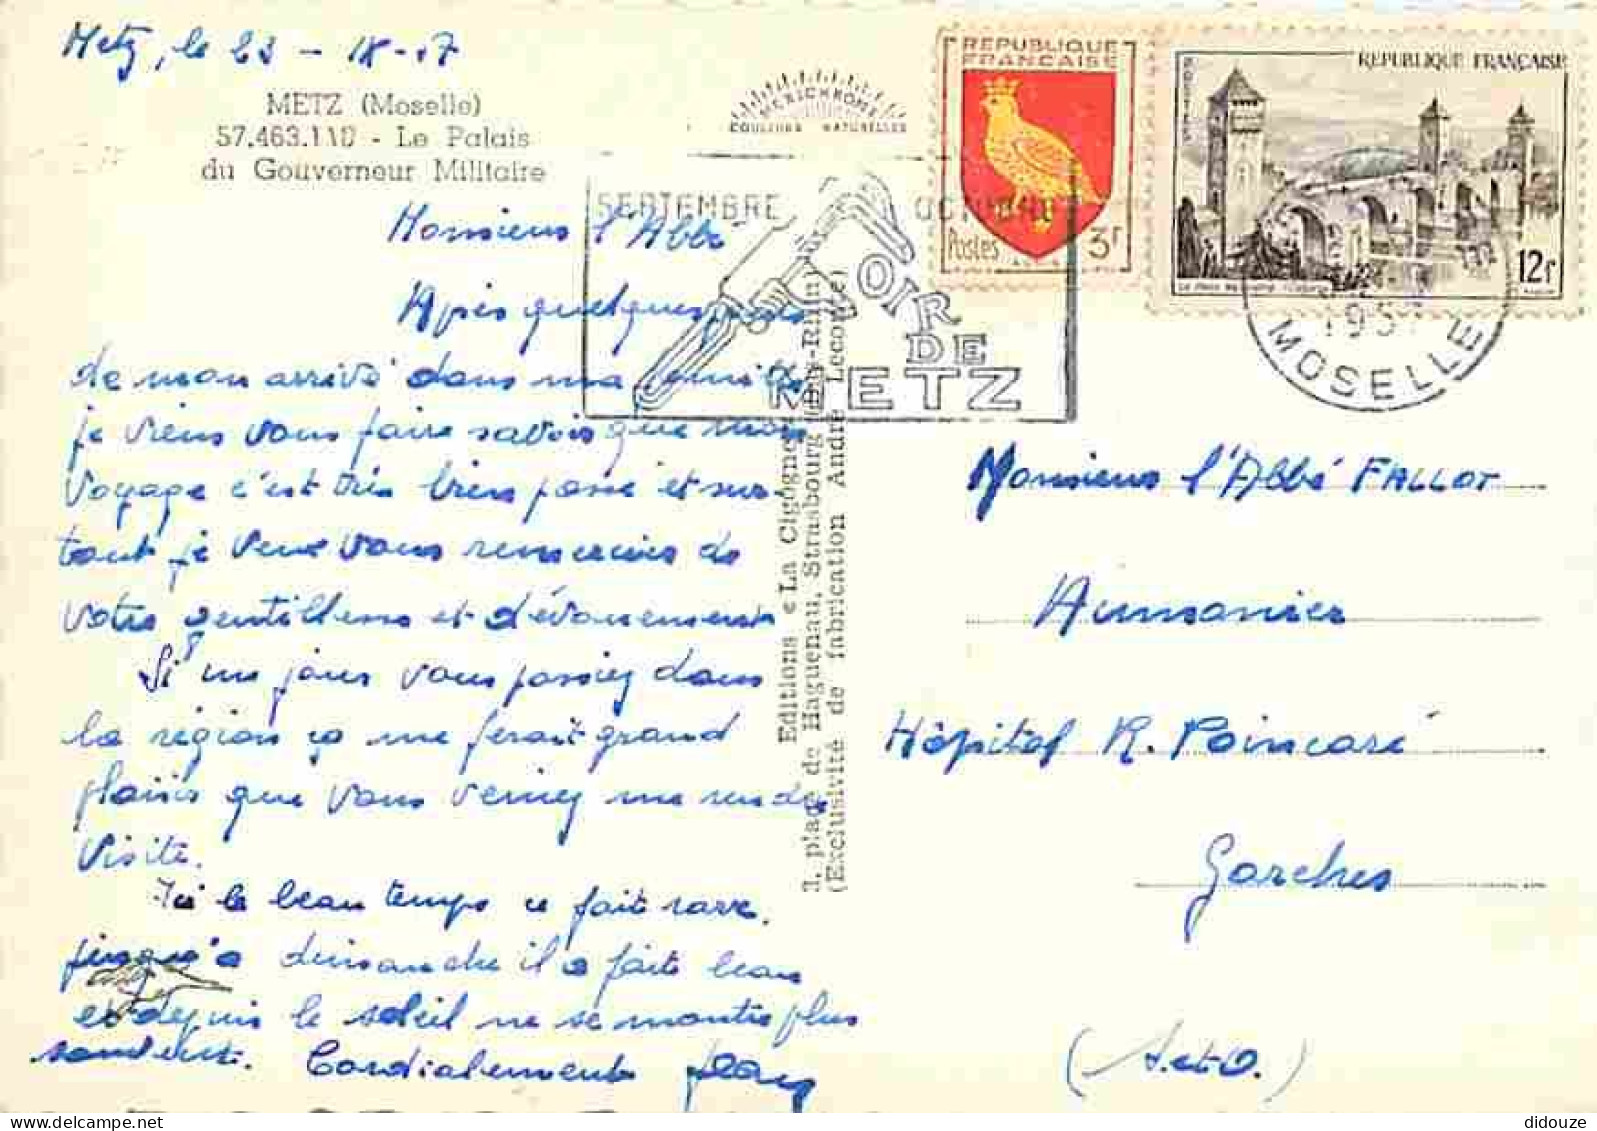 Metz, le 23 - IX - 57
METZ (Moselle)
57.463.110 - Le Palais
du Gouverneur Militaire
MEXICHROME
COULEURS NATURELLES
REPUBLIQUE
FRANCAISE
Postes 3f
REPUBLIQUE FRANÇAISE
POSTES
12f
SEPTEMBRE OCTOBRE
FOIRE
DE
METZ
1957
MOSELLE
Monsieur l'Abbé
Après quelques jours
de mon arrivé dans ma famille
je viens vous faire savoir que mon
voyage c'est très bien passé et sur
tout je veux vous remercier de
votre gentillesse et dévouement
Si un jour vous passiez dans
la région ça me ferait grand
plaisir que vous veniez me rendre
visite.
Ici le beau temps ce fait rare.
jusqu'a dimanche il a fait beau
et depuis le soleil ne se montre plus
souvent. Cordialement Jean
Editions « La Cigogne »
1, place de Haguenau, Strasbourg (Bas-Rhin)
(Exclusivité de fabrication André Leconte)
Monsieur l'Abbé FALLOT
Aumonier
Hôpital R. Poincaré
Garches
(S. et O.)
didouze
delcampe.net